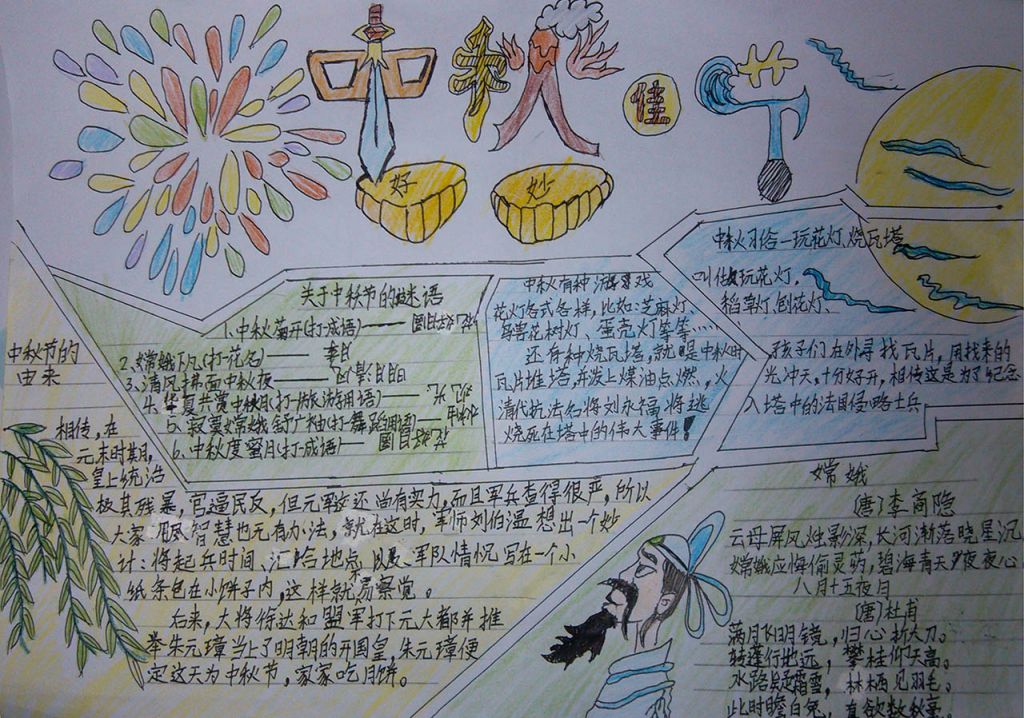 中秋佳节
好 妙
关于中秋节的谜语
1、中秋菊开(打一成语)——
2、嫦娥下凡(打一花名)——
3、清风拂面中秋夜——
4、华夏共赏中秋月(打一旅游用语)——
5、寂寞嫦娥舒广袖(打一舞蹈用语)
6、中秋度蜜月(打一成语)——
中秋有种游戏
花灯各式各样,比如:芝麻灯、
鸟兽花树灯、蛋壳灯等等……
还有种烧瓦塔,就是中秋时
瓦片堆塔,并泼上煤油点燃,火
清代抗法名将刘永福将逃
烧死在塔中的伟大事件!
中秋习俗一玩花灯、烧瓦塔
叫做玩花灯,
稻草灯、刨花灯、
孩子们在外寻找瓦片,用找来的
光冲天,十分好开,相传这是为了纪念
入塔中的法国侵略士兵
中秋节的
由来
相传,在
元末时期,
皇上统治
极其残暴,官逼民反,但元军这还尚有实力,而且军兵查得很严,所以
大家用尽智慧也无有办法,就在这时,军师刘伯温想出一个妙
计:将起兵时间、汇合地点以及军队情况写在一个小
纸条包在小饼子内,这样就不易察觉。
后来,大将徐达和盟军打下元大都并推
举朱元璋当上了明朝的开国皇,朱元璋便
定这天为中秋节,家家吃月饼。
嫦娥
(唐)李商隐
云母屏风烛影深,长河渐落晓星沉
嫦娥应悔偷灵药,碧海青天夜夜心
八月十五夜月
(唐)杜甫
满月飞明镜,归心折大刀。
转蓬行地远,攀桂仰天高。
水路疑霜雪,林栖见羽毛。
此时瞻白兔,直欲数秋毫